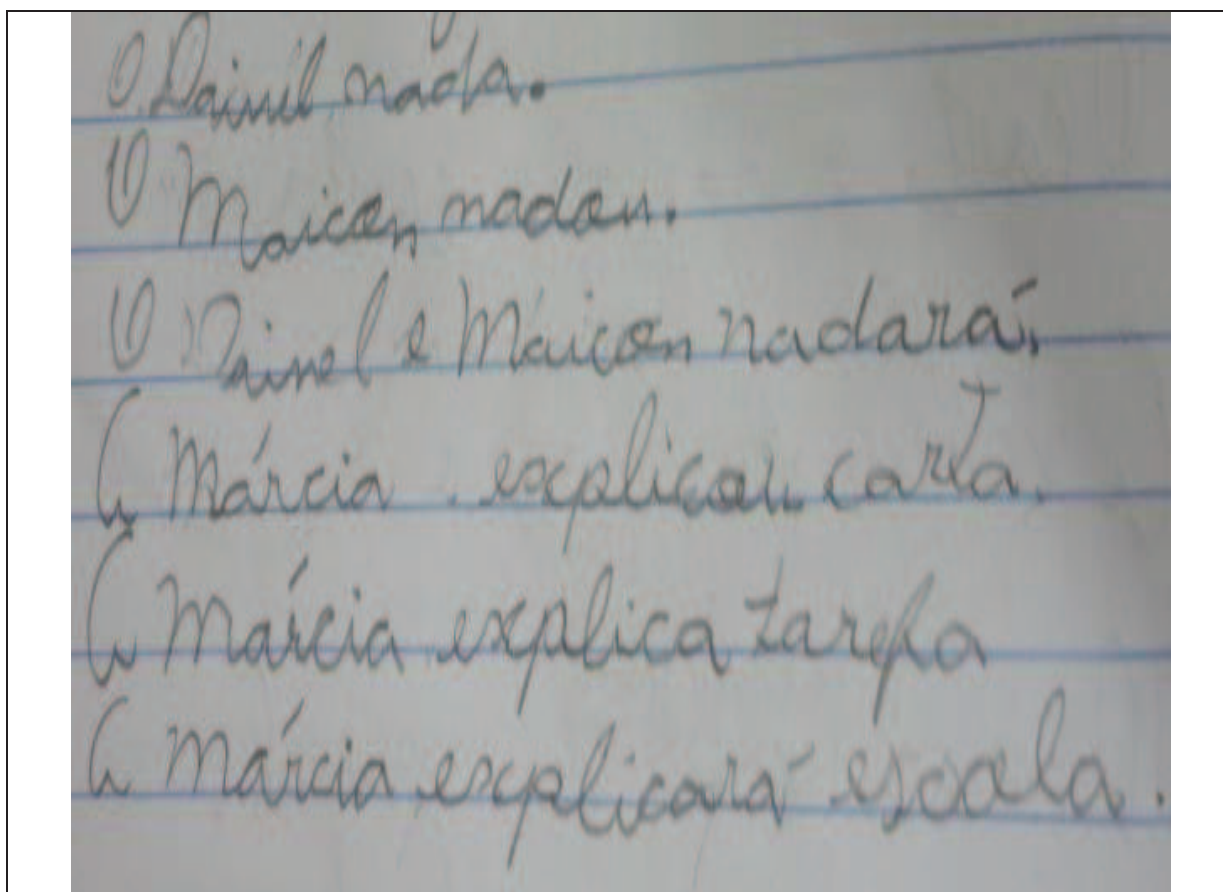 O Dainil nada.
O Maicon nadou.
O Dainel e Maicon nadará.
A Márcia explicou carta.
A Márcia explica tarefa
A Márcia explicará escola.